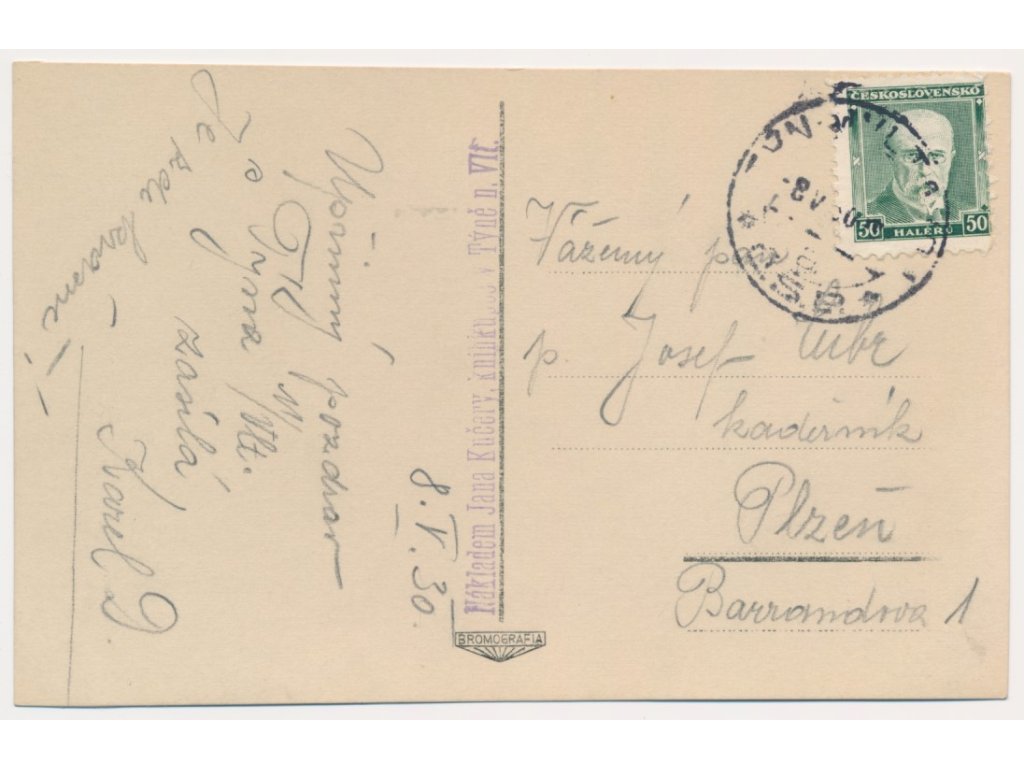 Upřímný pozdrav
z Týna n/Vlt.
zasílá
Karel
8.V.30.
Nákladem Jana Kučery, knihkup. v Týně n. Vlt.
BROMOGRAFIA
ČESKOSLOVENSKO
50 HALÉŘŮ 50
Vážený pan
p. Josef
kadeřník
Plzeň
Barrandova 1